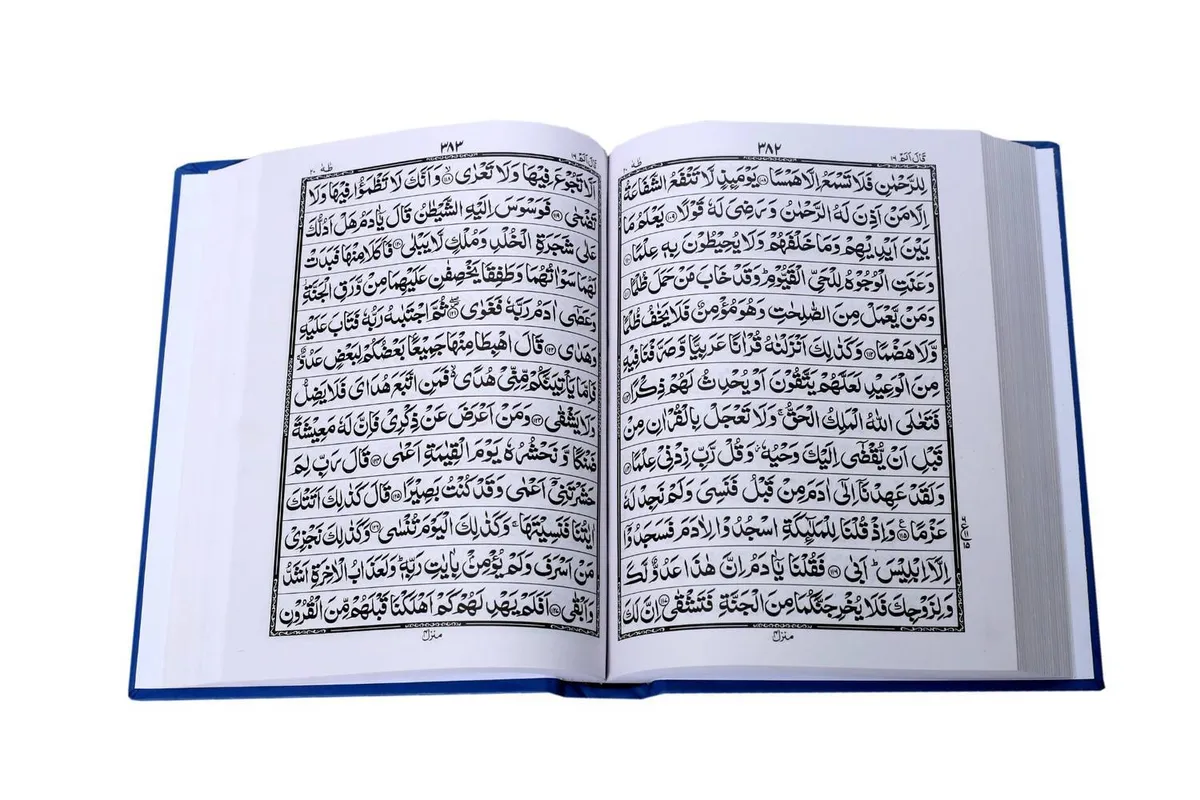 قَالَ اَلَمْ ١٦ ٣٨٢ طٰهٰ ٢٠
لِلرَّحْمٰنِ فَلَا تَسْمَعُ اِلَّا هَمْسًا ﴿١٠٨﴾ يَوْمَىِٕذٍ لَّا تَنْفَعُ الشَّفَاعَةُ
اِلَّا مَنْ اَذِنَ لَهُ الرَّحْمٰنُ وَ رَضِیَ لَهٗ قَوْلًا ﴿١٠٩﴾ یَعْلَمُ مَا
بَیْنَ اَیْدِیْهِمْ وَ مَا خَلْفَهُمْ وَ لَا یُحِیْطُوْنَ بِهٖ عِلْمًا ﴿١١٠﴾
وَ عَنَتِ الْوُجُوْهُ لِلْحَیِّ الْقَیُّوْمِ ؕ وَ قَدْ خَابَ مَنْ حَمَلَ ظُلْمًا ﴿١١١﴾
وَ مَنْ یَّعْمَلْ مِنَ الصّٰلِحٰتِ وَ هُوَ مُؤْمِنٌ فَلَا یَخٰفُ ظُلْمًا
وَّ لَا هَضْمًا ﴿١١٢﴾ وَ كَذٰلِكَ اَنْزَلْنٰهُ قُرْاٰنًا عَرَبِیًّا وَّ صَرَّفْنَا فِیْهِ
مِنَ الْوَعِیْدِ لَعَلَّهُمْ یَتَّقُوْنَ اَوْ یُحْدِثُ لَهُمْ ذِكْرًا ﴿١١٣﴾
فَتَعٰلَی اللّٰهُ الْمَلِكُ الْحَقُّ ۚ وَ لَا تَعْجَلْ بِالْقُرْاٰنِ مِنْ
قَبْلِ اَنْ یُّقْضٰۤی اِلَیْكَ وَحْیُهٗ ؗ وَ قُلْ رَّبِّ زِدْنِیْ عِلْمًا ﴿١١٤﴾
وَ لَقَدْ عَهِدْنَاۤ اِلٰۤی اٰدَمَ مِنْ قَبْلُ فَنَسِیَ وَ لَمْ نَجِدْ لَهٗ
عَزْمًا ﴿١١٥﴾ وَ اِذْ قُلْنَا لِلْمَلٰٓىِٕكَةِ اسْجُدُوْا لِاٰدَمَ فَسَجَدُوْۤا
اِلَّاۤ اِبْلِیْسَ ؕ اَبٰی ﴿١١٦﴾ فَقُلْنَا یٰۤاٰدَمُ اِنَّ هٰذَا عَدُوٌّ لَّكَ
وَ لِزَوْجِكَ فَلَا یُخْرِجَنَّكُمَا مِنَ الْجَنَّةِ فَتَشْقٰی ﴿١١٧﴾ اِنَّ لَكَ
منزل ٤
قَالَ اَلَمْ ١٦ ٣٨٣ طٰهٰ ٢٠
اَلَّا تَجُوْعَ فِیْهَا وَ لَا تَعْرٰی ﴿١١٨﴾ وَ اَنَّكَ لَا تَظْمَؤُا فِیْهَا وَ لَا
تَضْحٰی ﴿١١٩﴾ فَوَسْوَسَ اِلَیْهِ الشَّیْطٰنُ قَالَ یٰۤاٰدَمُ هَلْ اَدُلُّكَ
عَلٰی شَجَرَةِ الْخُلْدِ وَ مُلْكٍ لَّا یَبْلٰی ﴿١٢٠﴾ فَاَكَلَا مِنْهَا فَبَدَتْ
لَهُمَا سَوْاٰتُهُمَا وَ طَفِقَا یَخْصِفٰنِ عَلَیْهِمَا مِنْ وَّرَقِ الْجَنَّةِ ؗ
وَ عَصٰۤی اٰدَمُ رَبَّهٗ فَغَوٰی ﴿١٢١﴾ ثُمَّ اجْتَبٰهُ رَبُّهٗ فَتَابَ عَلَیْهِ
وَ هَدٰی ﴿١٢٢﴾ قَالَ اهْبِطَا مِنْهَا جَمِیْعًۢا بَعْضُكُمْ لِبَعْضٍ عَدُوٌّ ۚ
فَاِمَّا یَاْتِیَنَّكُمْ مِّنِّیْ هُدًی ۙ فَمَنِ اتَّبَعَ هُدَایَ فَلَا یَضِلُّ
وَ لَا یَشْقٰی ﴿١٢٣﴾ وَ مَنْ اَعْرَضَ عَنْ ذِكْرِیْ فَاِنَّ لَهٗ مَعِیْشَةً
ضَنْكًا وَّ نَحْشُرُهٗ یَوْمَ الْقِیٰمَةِ اَعْمٰی ﴿١٢٤﴾ قَالَ رَبِّ لِمَ
حَشَرْتَنِیْۤ اَعْمٰی وَ قَدْ كُنْتُ بَصِیْرًا ﴿١٢٥﴾ قَالَ كَذٰلِكَ اَتَتْكَ
اٰیٰتُنَا فَنَسِیْتَهَا ۚ وَ كَذٰلِكَ الْیَوْمَ تُنْسٰی ﴿١٢٦﴾ وَ كَذٰلِكَ نَجْزِیْ
مَنْ اَسْرَفَ وَ لَمْ یُؤْمِنْۢ بِاٰیٰتِ رَبِّهٖ ؕ وَ لَعَذَابُ الْاٰخِرَةِ اَشَدُّ
وَ اَبْقٰی ﴿١٢٧﴾ اَفَلَمْ یَهْدِ لَهُمْ كَمْ اَهْلَكْنَا قَبْلَهُمْ مِّنَ الْقُرُوْنِ
منزل ٤